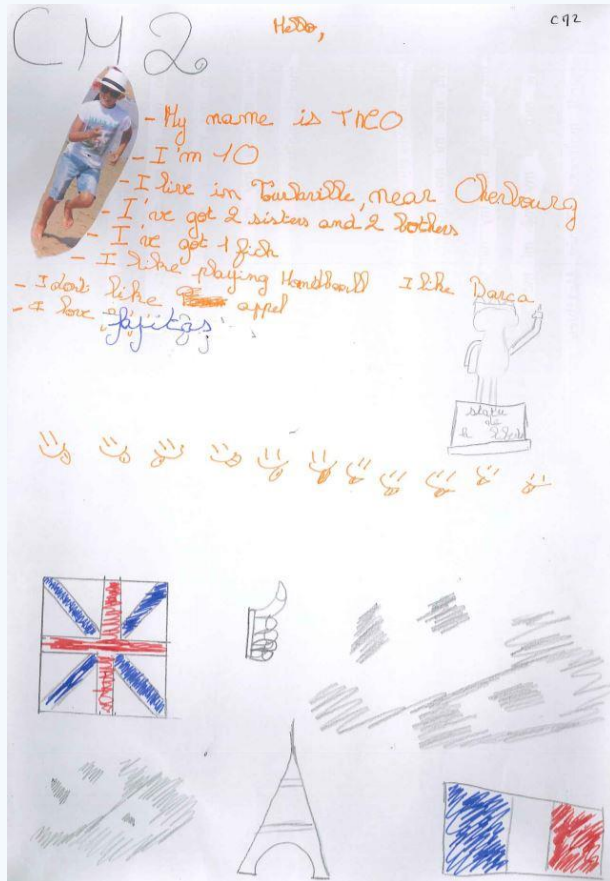 CM2
Hello,
CM2
- My name is THEO
- I'm 10
- I live in Tourlaville, near Cherbourg
- I've got 2 sisters and 2 bothers
- I've got 1 fich
- I like playing Handball I like Barca
- I dont like appel
- I love fajitas
statu
de
la